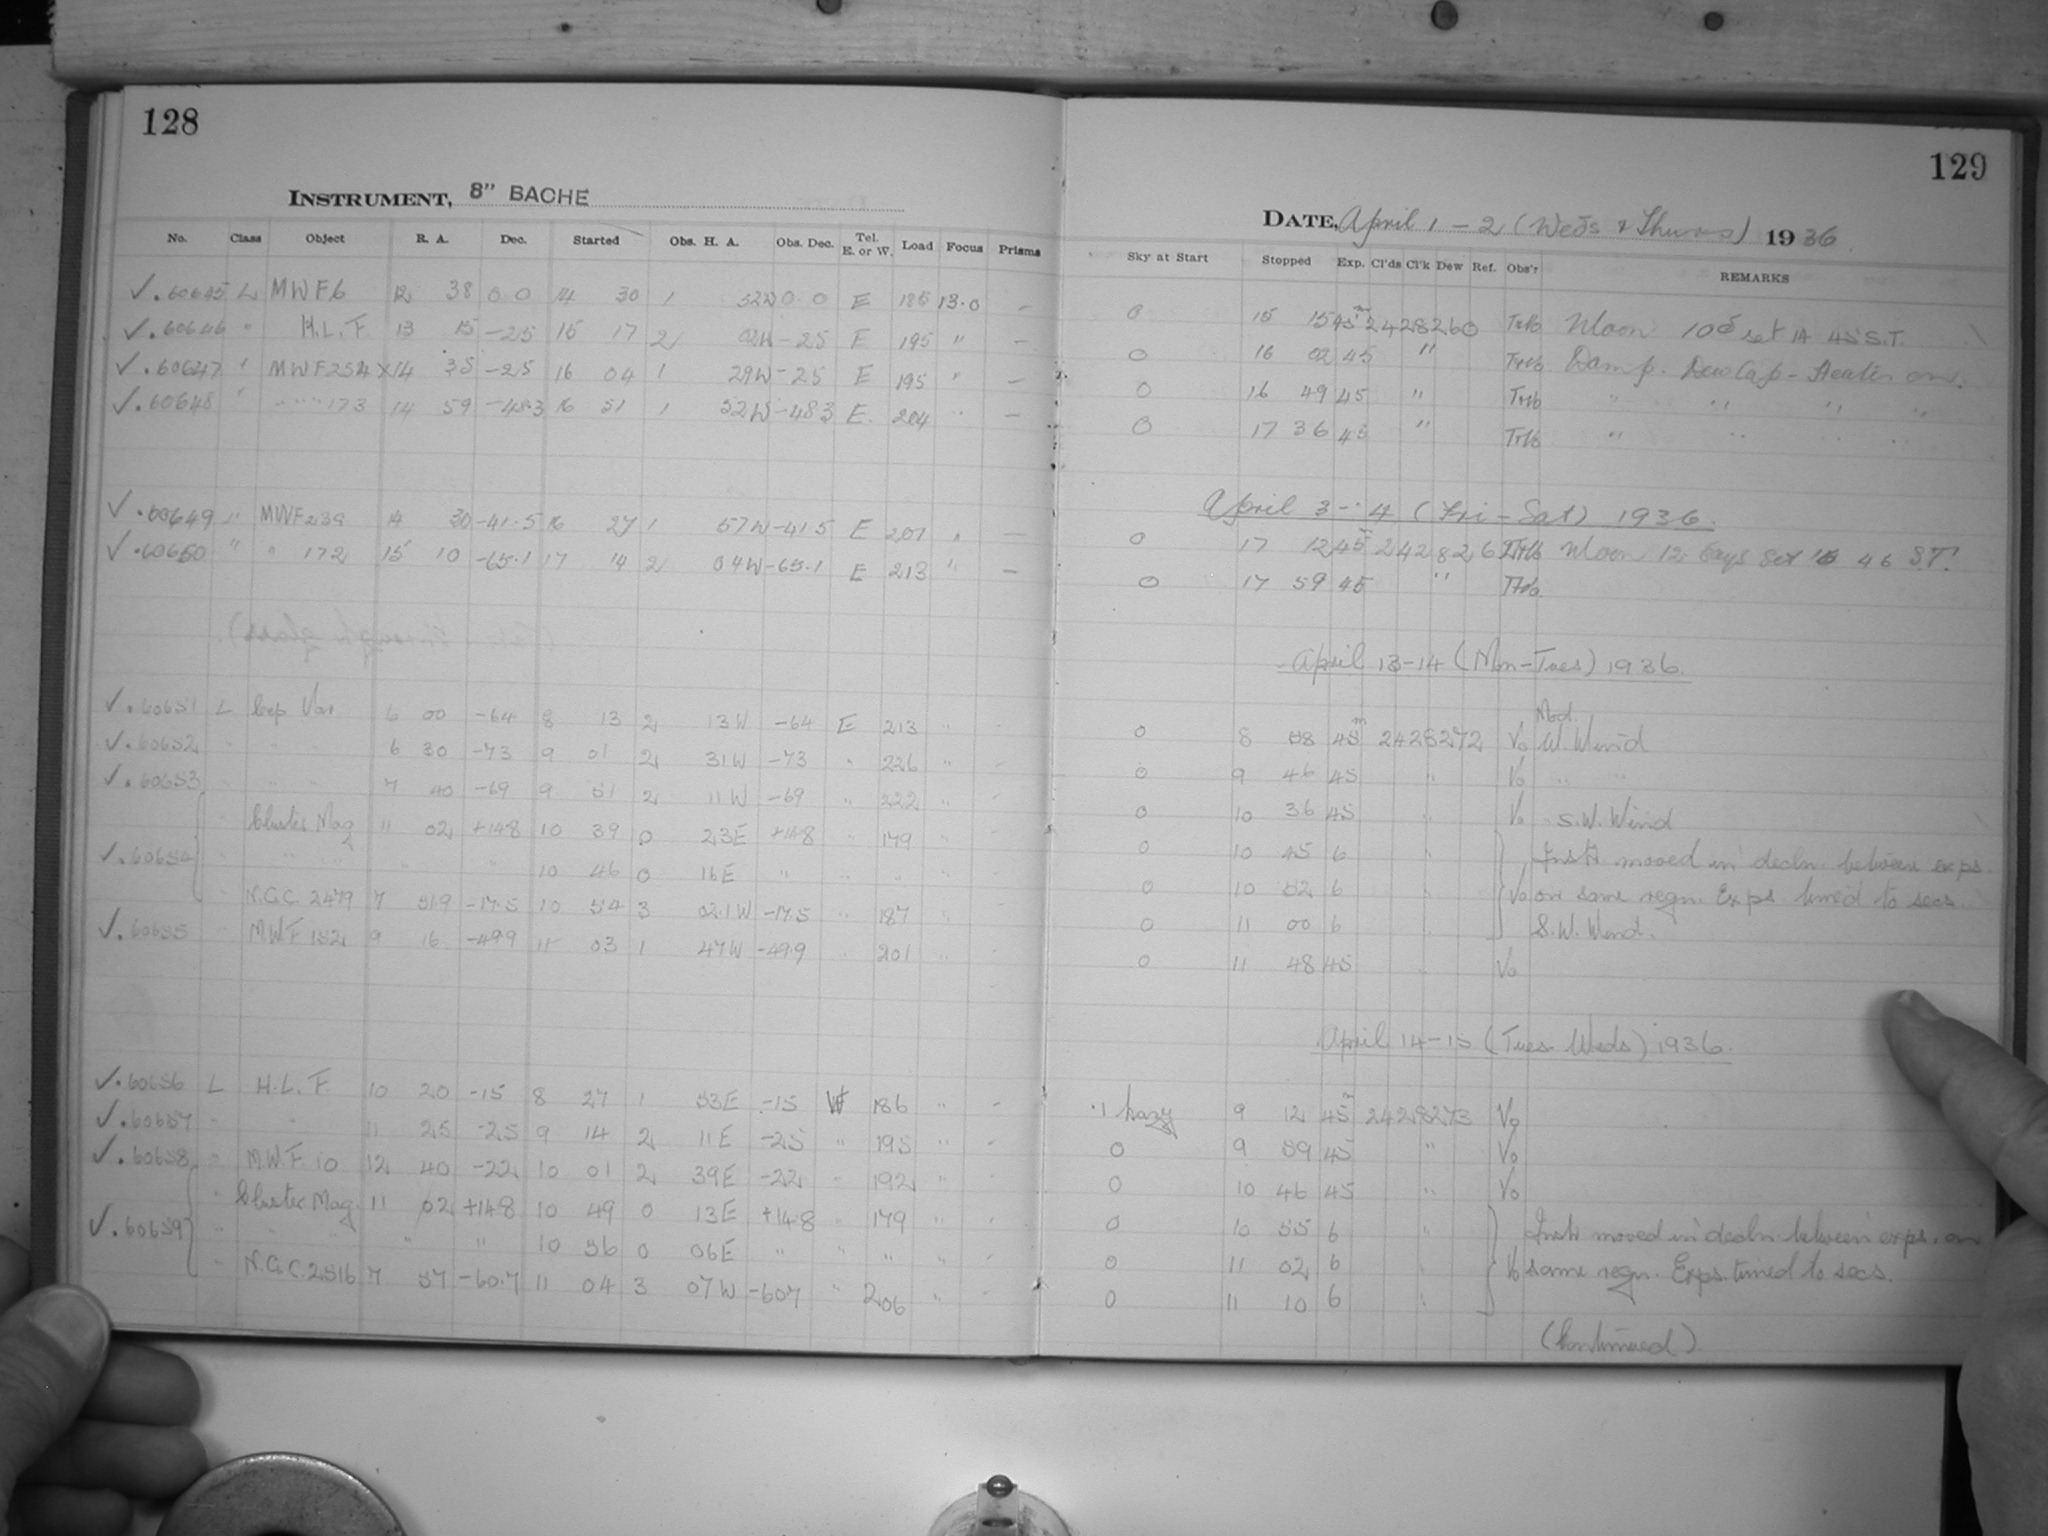 128
INSTRUMENT, 8" BACHE
No. Class Object R. A. Dec. Started Obs. H. A. Obs. Dec. Tel. E. or W. Load Focus Prisms
✓.60645 L MWF6 12 38 0 0 14 30 1 52W 0 0 E 185 13.0 –
✓.60646 " H.L.F. 13 15 -25 15 17 2 02W -25 E 195 " –
✓.60647 " MWF254 X 14 35 -25 16 04 1 29W -25 E 195 " –
✓.60648 " " " " 173 14 59 -48.3 16 51 1 52W -48.3 E. 204 " –
✓.60649 " MWF239 14 30 -41.5 16 27 1 57W -41.5 E 201 " –
✓.60650 " " 172 15 10 -65.1 17 14 2 04W -65.1 E 213 " –
✓.60651 L Cep Var 6 00 -64 8 13 2 13W -64 E 213 " –
✓.60652 " " " 6 30 -73 9 01 2 31W -73 " 226 " –
✓.60653 " " " 7 40 -69 9 51 2 11W -69 " 222 " –
Cluster Mag 11 02 +14.8 10 39 0 23E +14.8 " 179 "
✓.60654 " " " " " 10 46 0 16E " " " "
" N.G.C. 2479 7 51.9 -17.5 10 54 3 02.1W -17.5 " 187 "
✓.60655 " M.W.F. 152 9 16 -49.9 11 03 1 47W -49.9 " 201 "
✓.60656 L H.L.F. 10 20 -15 8 27 1 53E -15 W 186 " –
✓.60657 " " 11 25 -25 9 14 2 11E -25 " 195 " –
✓.60658 " M.W.F. 10 12 40 -22 10 01 2 39E -22 " 192 " –
" Cluster Mag. 11 02 +14.8 10 49 0 13E +14.8 " 179 " –
✓.60659 " " " " " 10 56 0 06E " " " "
" N.G.C. 2516 7 57 -60.7 11 04 3 07W -60.7 " 206 " –
129
DATE, April 1 - 2 (Weds & Thurs) 1936.
Sky at Start Stopped Exp. Cl'ds Cl'k Dew Ref. Obs'r REMARKS
0 15 15 45m 2428260 Moon 10d set 14 45 S.T.
0 16 02 45 " Damp. Dew Cap - Heater on.
0 16 49 45 " " " " "
0 17 36 45 " " " " "
April 3 - 4 (Fri - Sat) 1936.
0 17 12 45m 24282 6 Moon 12 days set 46 S.T.
0 17 59 45 "
April 13-14 (Mon-Tues) 1936.
Mod.
0 8 58 45m 2428272 Vo W. Wind
0 9 46 45 " Vo " "
0 10 36 45 Vo " S.W. Wind
0 10 45 6 " Instr moved in decln. between exps.
0 10 52 6 " Vo on same regn. Exps. timed to secs.
0 11 00 6 " S.W. Wind.
0 11 48 45 " Vo
April 14-15 (Tues-Weds) 1936.
.1 hazy 9 12 45m 2428273 Vo
0 9 59 45 " Vo
0 10 46 45 " Vo
0 10 55 6 " Instr moved in decln. between exps. on
0 11 02 6 Vo same regn. Exps. timed to secs.
0 11 10 6 "
(Continued).